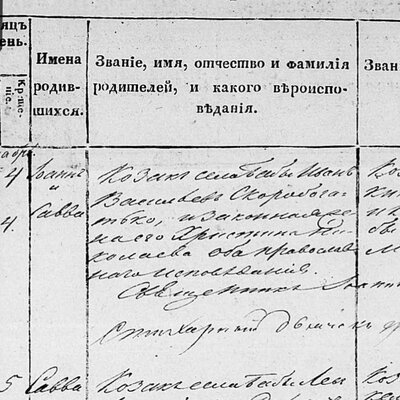 яцъ
ень.
Креще-
ніе.
Имена
родив-
шихся.
Званіе, имя, отчество и фамилія
родителей, и какого вѣроиспо-
вѣданія.
Зван
4
Іоаннъ
"
4.
Савва
Козакъ села Бабы Иванъ
Васильевъ Скоробога-
тько, и законная же-
на его Христина Ни-
колаева оба православ-
наго исповѣданія.
Священникъ Іоанн
Стихарный
5
Савва
Козакъ села Бабы
Коз